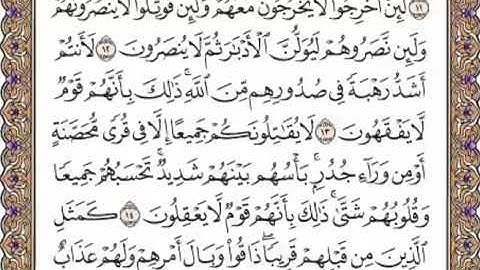 ١١ لَئِنْ أُخْرِجُوا۟ لَا يَخْرُجُونَ مَعَهُمْ وَلَئِن قُوتِلُوا۟ لَا يَنصُرُونَهُمْ
وَلَئِن نَّصَرُوهُمْ لَيُوَلُّنَّ ٱلْأَدْبَـٰرَ ثُمَّ لَا يُنصَرُونَ ١٢ لَأَنتُمْ
أَشَدُّ رَهْبَةً فِى صُدُورِهِم مِّنَ ٱللَّهِ ۚ ذَٰلِكَ بِأَنَّهُمْ قَوْمٌ
لَّا يَفْقَهُونَ ١٣ لَا يُقَـٰتِلُونَكُمْ جَمِيعًا إِلَّا فِى قُرًى مُّحَصَّنَةٍ
أَوْ مِن وَرَآءِ جُدُرٍۭ ۚ بَأْسُهُم بَيْنَهُمْ شَدِيدٌ ۚ تَحْسَبُهُمْ جَمِيعًا
وَقُلُوبُهُمْ شَتَّىٰ ۚ ذَٰلِكَ بِأَنَّهُمْ قَوْمٌ لَّا يَعْقِلُونَ ١٤ كَمَثَلِ
ٱلَّذِينَ مِن قَبْلِهِمْ قَرِيبًا ۖ ذَاقُوا۟ وَبَالَ أَمْرِهِمْ وَلَهُمْ عَذَابٌ